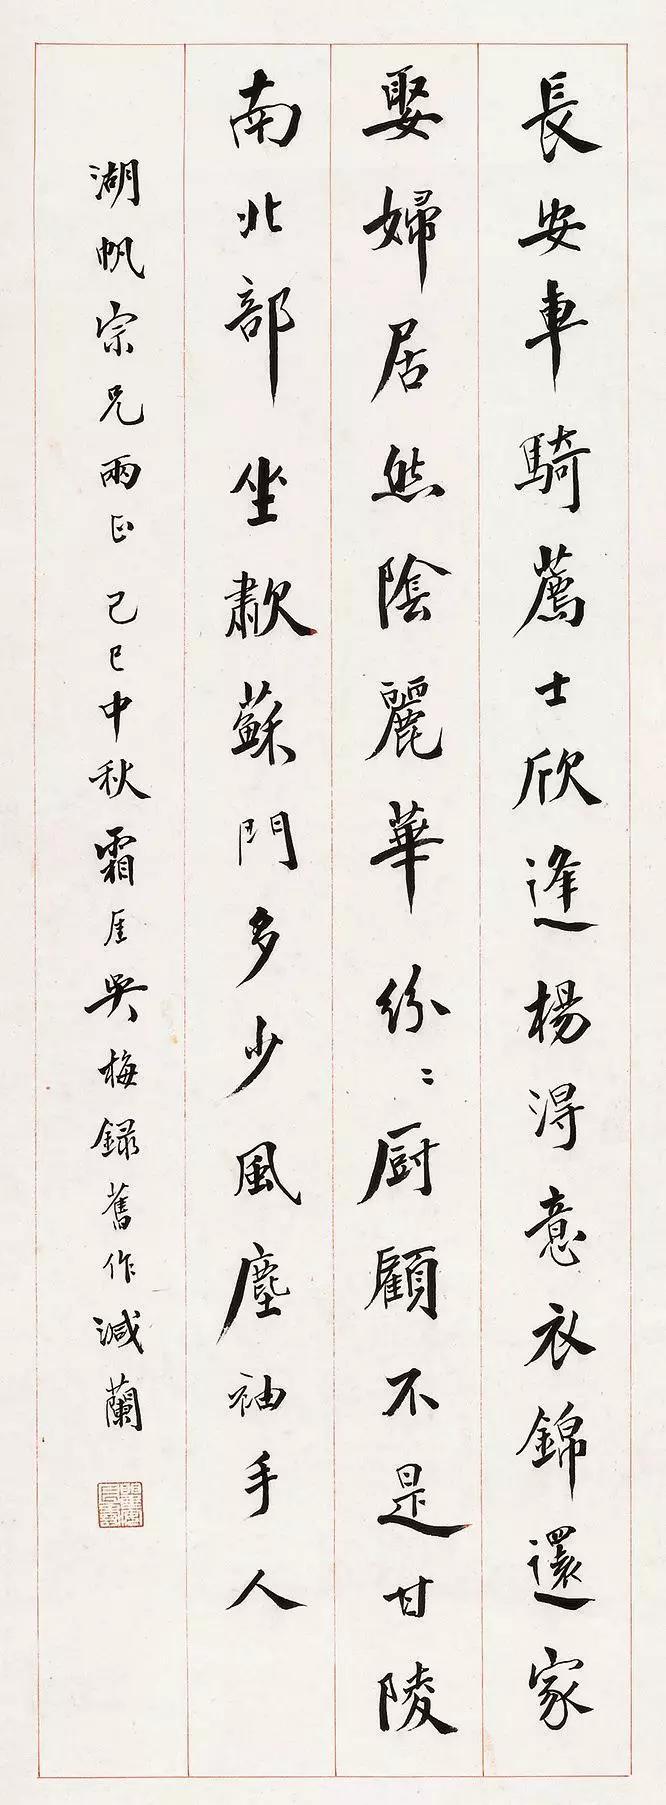 長安車騎薦士欣逢楊得意衣錦還家
娶婦居然陰麗華紛〻厨顧不是甘陵
南北部坐歗蘇門多少風塵袖手人
湖帆宗兄兩正己巳中秋霜厓吳梅録舊作減蘭